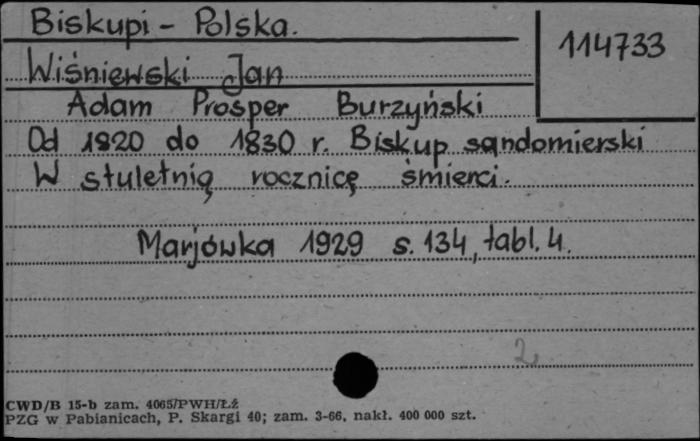 Biskupi - Polska.
114733
Wiśniewski Jan
Adam Prosper Burzyński
Od 1820 do 1830 r. Biskup sandomierski
W stuletnią rocznicę śmierci.
Marjówka 1929 s. 134, tabl. 4.
2
CWD/B 15-b zam. 4065/PWH/Łź
PZG w Pabianicach, P. Skargi 40; zam. 3-66, nakł. 400 000 szt.